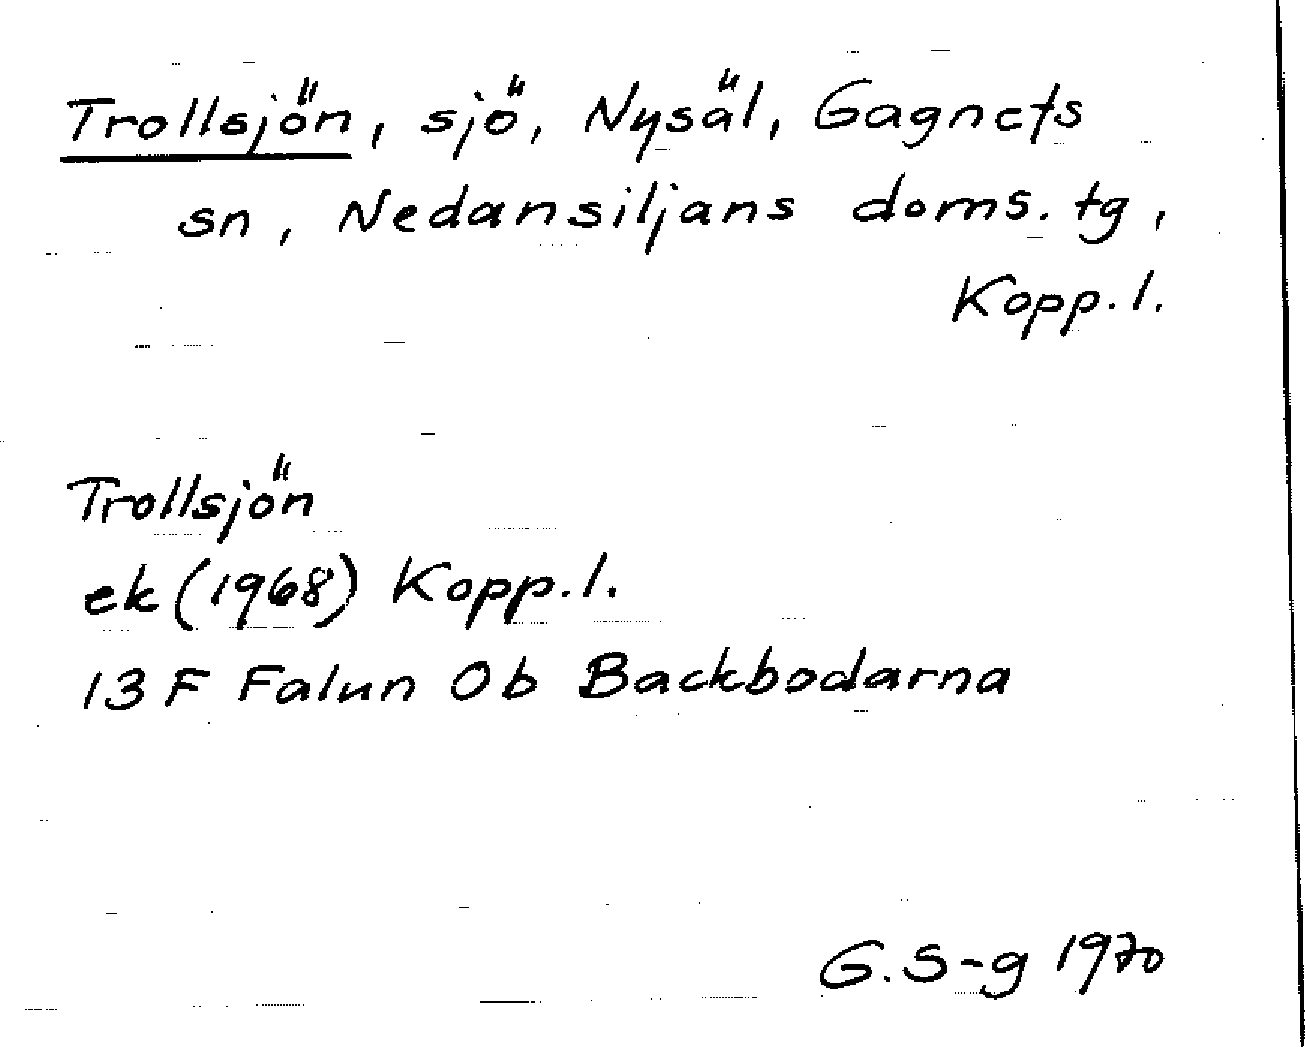 Trollsjön, sjö, Nysäl, Gagnets
sn, Nedansiljans doms. tg,
Kopp. l.
Trollsjön
ek (1968) Kopp. l.
13 F Falun 0b Backbodarna
G. S-g 1970